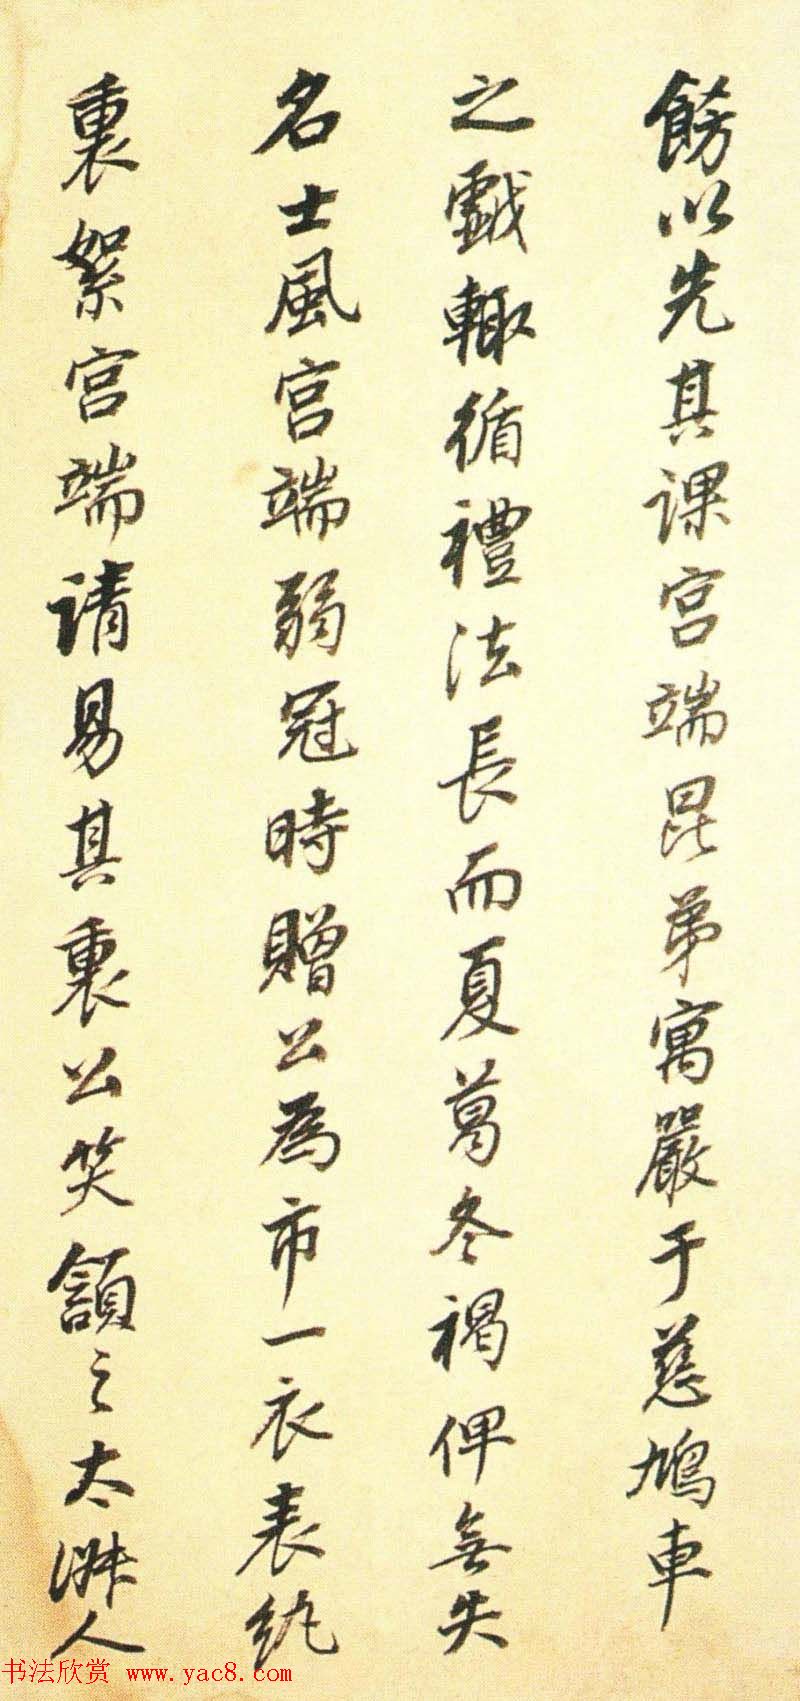 餝以先其課宮端昆弟寓嚴于慈鳩車
之戲輙循禮法長而夏葛冬褐俾無失
名士風宮端弱冠時贈公為市一衣表紈
裏絮宮端請易其裏公笑頷之太淑人
书法欣赏 www.yac8.com